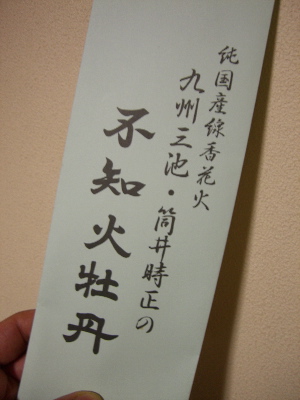 純国産線香花火
九州三池・筒井時正の
不知火牡丹